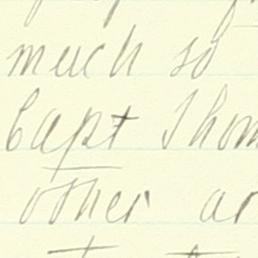 much so
Capt Thom
other ar